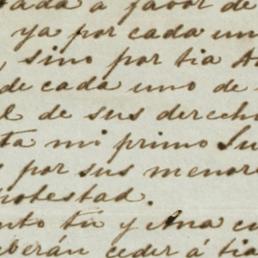 ada a favor de
ya por cada un
, sino por tia A
de cada uno de
l de sus derecho
ta mi primo Ju
s por sus menore
otestad.
nto tú y Ana cu
eberán ceder á tia